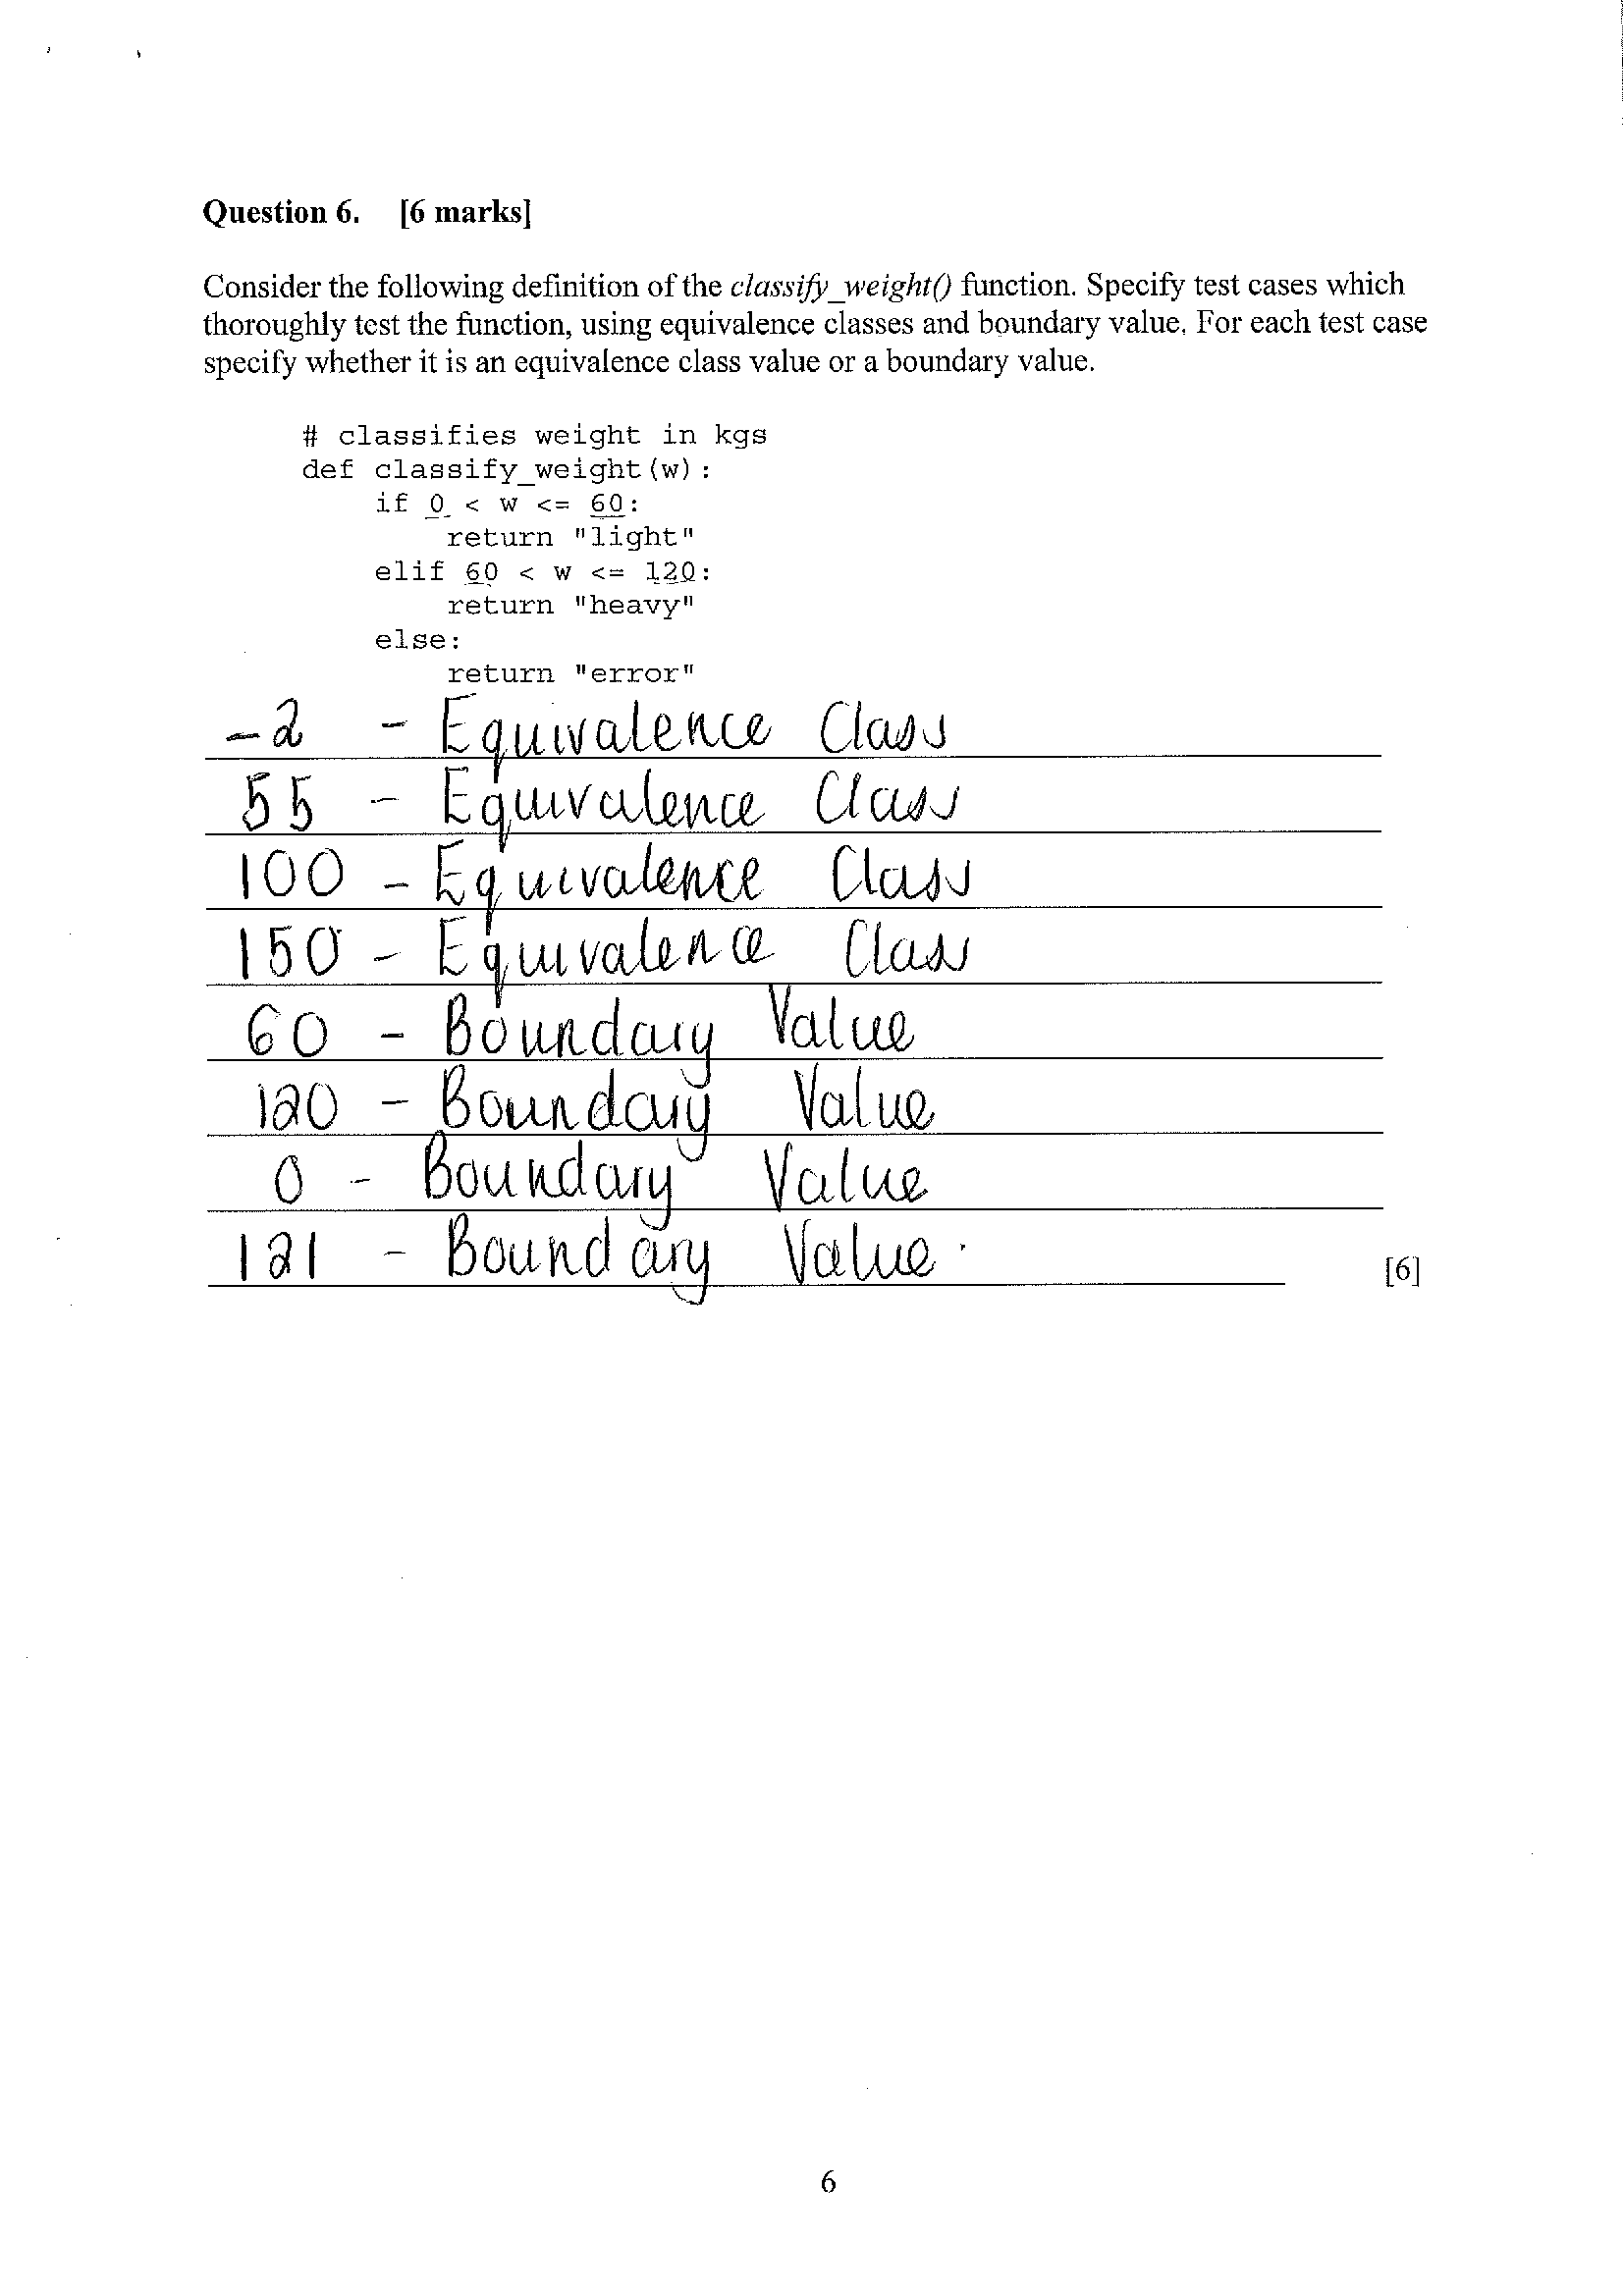 Question 6. [6 marks]
Consider the following definition of the classify_weight() function. Specify test cases which
thoroughly test the function, using equivalence classes and boundary value. For each test case
specify whether it is an equivalence class value or a boundary value.
# classifies weight in kgs
def classify_weight(w):
if 0 < w <= 60:
return "light"
elif 60 < w <= 120:
return "heavy"
else:
return "error"
-2 - Equivalence Class
55 - Equivalence Class
100 - Equivalence Class
150 - Equivalence Class
60 - Boundary Value
120 - Boundary Value
0 - Boundary Value
121 - Boundary Value
[6]
6